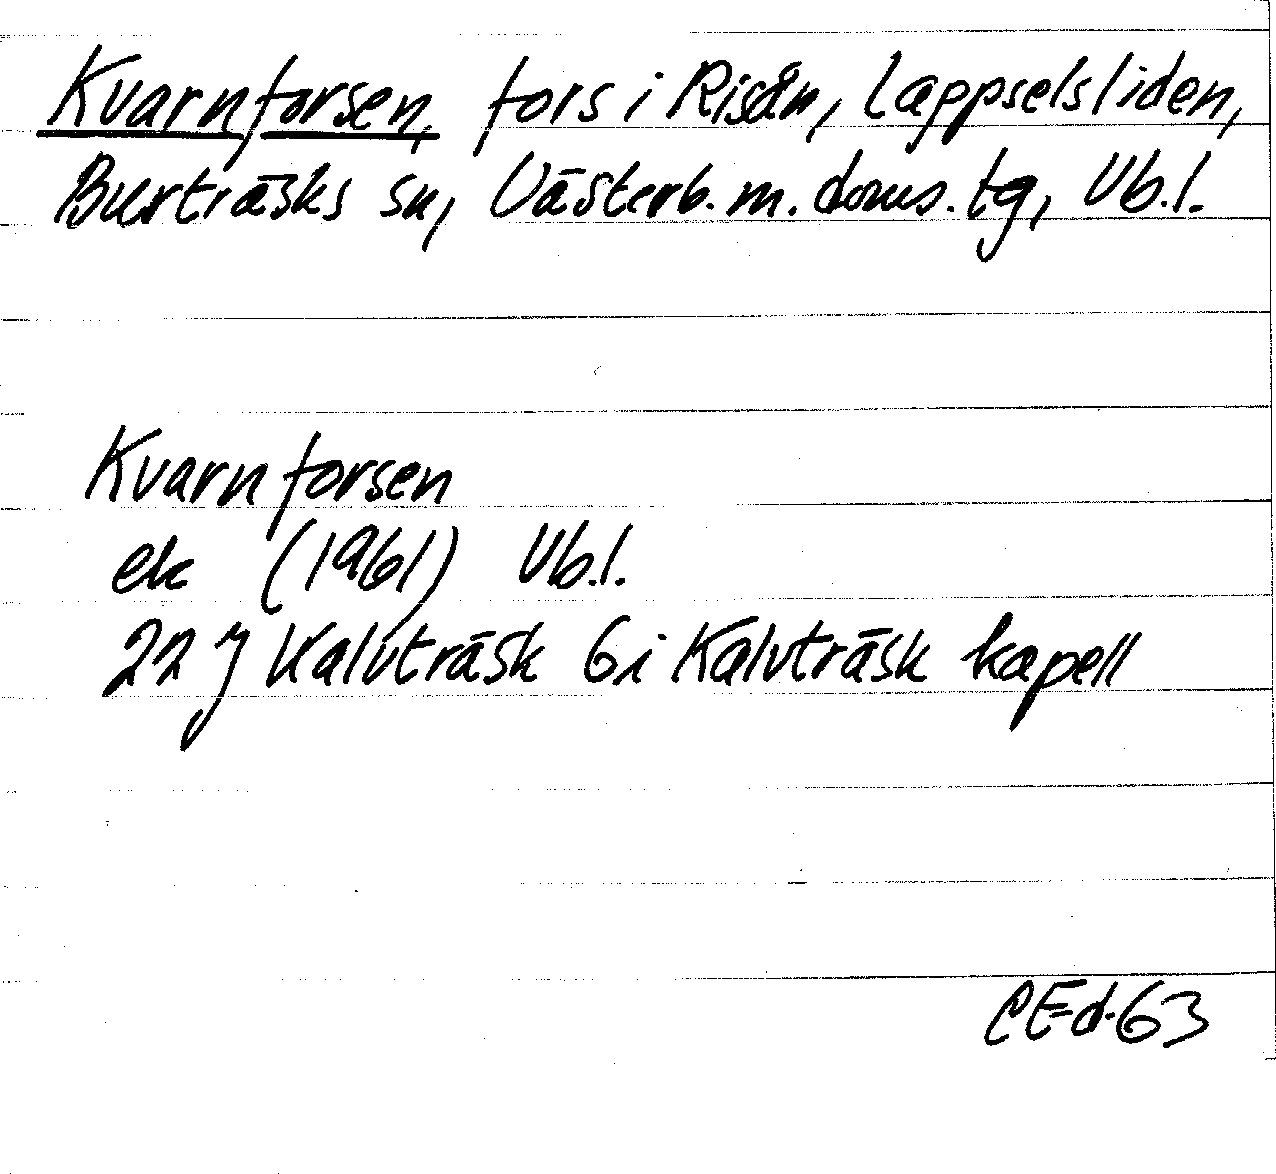 Kvarnforsen, fors i Risån, Lappselsliden,
Burträsks sn, Västerb. m. doms. tg, Vb.l.
Kvarnforsen
ek (1961) Vb.l.
22 J Kalvträsk 6i Kalvträsk kapell
CEd. 63